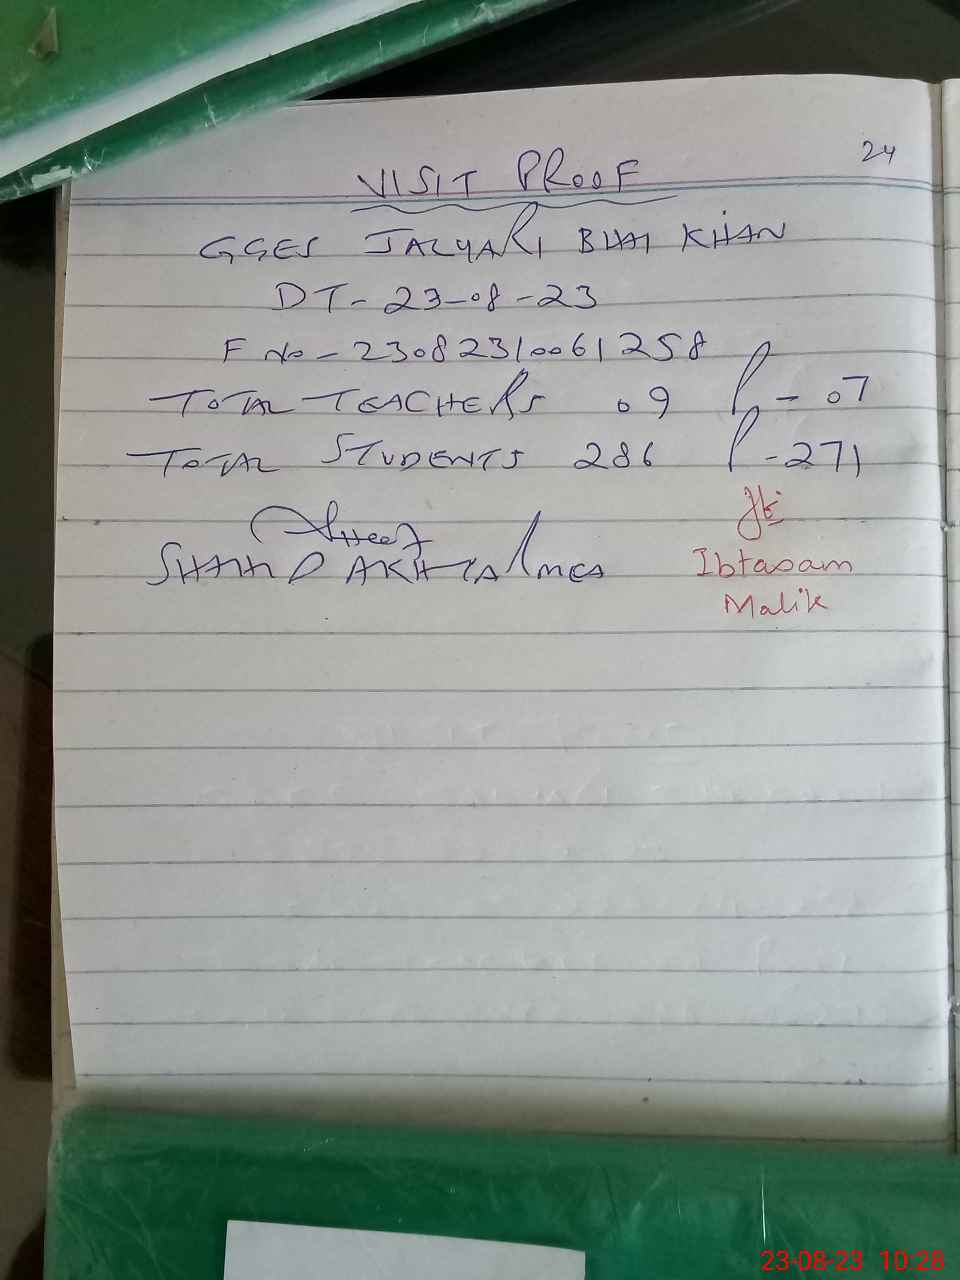 24
VISIT PROOF
GGES JALYARI BHAI KHAN
DT- 23-08-23
F No - 23082310061258
TOTAL TEACHERS 09 P - 07
TOTAL STUDENTS 286 P - 271
SHAHID AKHTAR MEA
Ibtasam
Malik
23-08-23 10:28